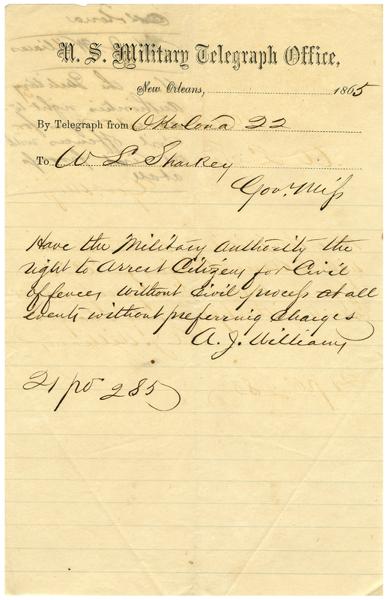 U. S. Military Telegraph Office,
New Orleans, 1865
By Telegraph from Okolona 22
To W L Sharkey
Gov. Miss
Have the Military authority the
right to arrest Citizens for Civil
offences without Civil process at all
events without preferring charges
A. J. Williams
21 pd 285